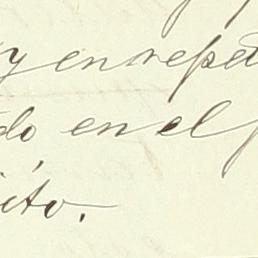 y en repet
do en el p
ito.